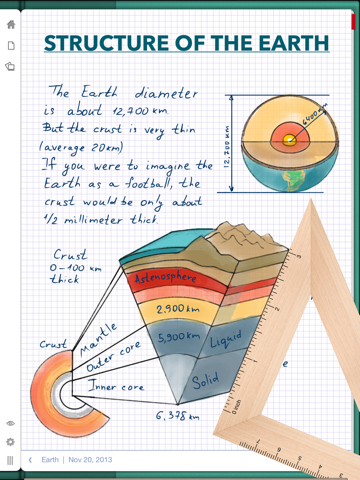 STRUCTURE OF THE EARTH
The Earth diameter
is about 12,700 km
But the crust is very thin
(average 20km)
If you were to imagine the
Earth as a football, the
crust would be only about
1/2 millimeter thick.
6400 km
12,700 km
Crust
0-100 km
thick
Astenosphere
2,900 km
5,900 km
Liquid
Solid
6,378 km
Crust
Mantle
Outer core
Inner core
e
3
2
1
0 inch
7
6
5
Earth | Nov 20, 2013